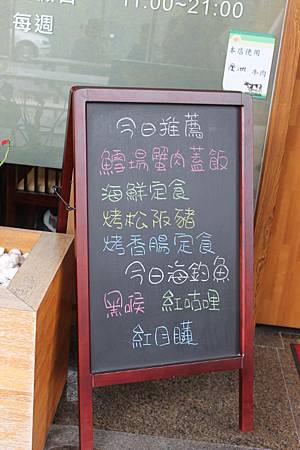 11:00~21:00
每週
本店使用
澳洲 牛肉
今日推薦
鱈場蟹肉蓋飯
海鮮定食
烤松阪豬
烤香腸定食
今日海釣魚
黑喉 紅咕哩
紅目鰱